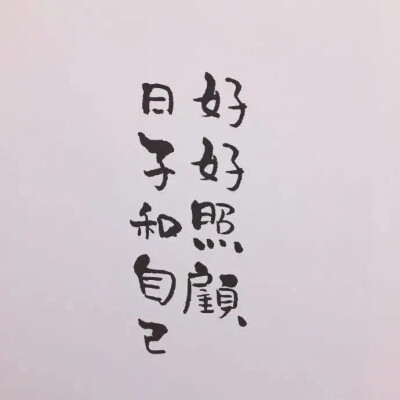 好好照顧
日子和自己